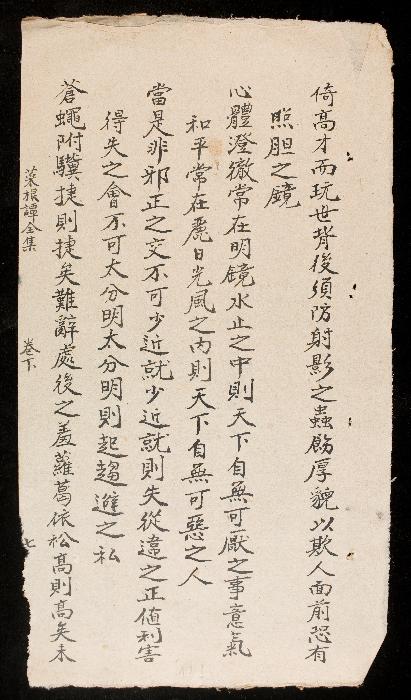 倚高才而玩世背後須防射影之蟲餙厚貌以欺人面前恐有
照胆之鏡
心體澄徹常在明鏡水止之中則天下自無可厭之事意氣
和平常在麗日光風之內則天下自無可惡之人
當是非邪正之交不可少近就少近就則失從違之正值利害
得失之會不可太分明太分明則起趨避之私
蒼蠅附驥捷則捷矣難辭處後之羞蘿葛依松高則高矣未
菜根譚全集 卷下 七